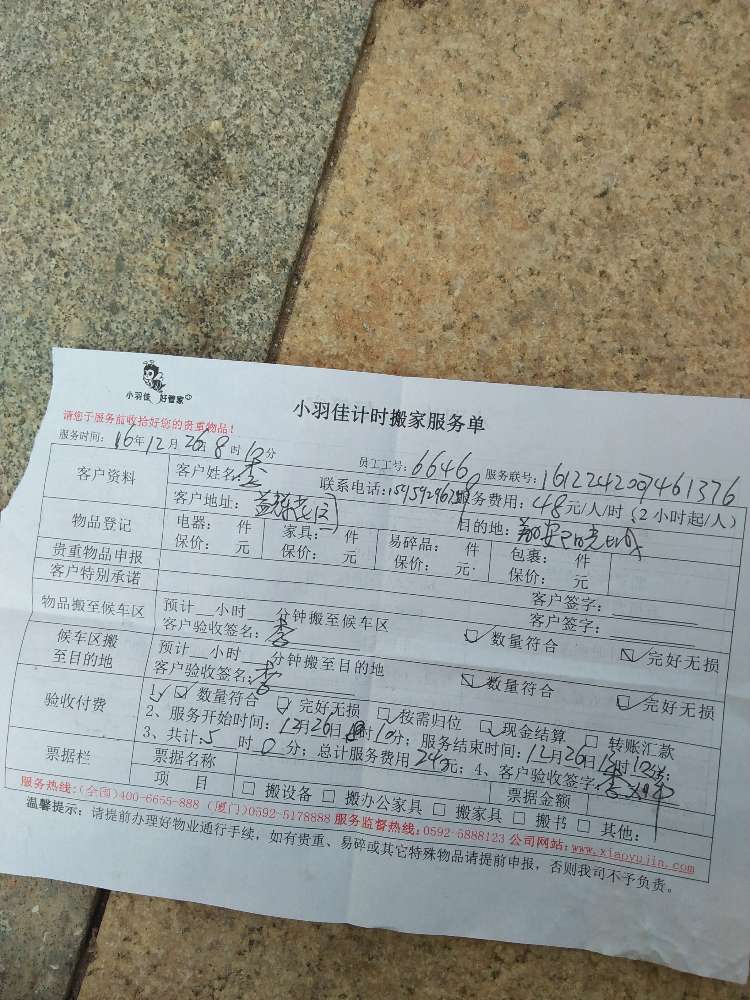 小羽佳 好管家
小羽佳计时搬家服务单
请您于服务前收拾好您的贵重物品！
服务时间：16年12月26日8时10分 员工工号：66468 服务联号：1612242007461376
客户资料 客户姓名：李 联系电话： 服务费用：48元/人/时（2小时起/人）
客户地址： 目的地：
物品登记 电器： 件 家具： 件 易碎品： 件 包裹： 件
保价： 元 保价： 元 保价： 元 保价： 元
贵重物品申报 客户签字：
客户特别承诺 客户签字：
物品搬至候车区 预计__小时____分钟搬至候车区 ☑ 数量符合 ☑ 完好无损
客户验收签名：李
候车区搬至目的地 预计__小时____分钟搬至目的地 ☑ 数量符合 ☑ 完好无损
客户验收签名：李
验收付费 1、☑ 数量符合 ☑ 完好无损 ☑ 按需归位 ☑ 现金结算 □ 转账汇款
2、服务开始时间：12月26日8时10分；服务结束时间：12月26日13时10分；
3、共计：5时0分；总计服务费用240元；4、客户验收签字：李
票据栏 票据名称 票据金额
项 目 □ 搬设备 □ 搬办公家具 □ 搬家具 □ 搬书 □ 其他：
服务热线：(全国)400-6655-888 (厦门)0592-5178888 服务监督热线：0592-5888123 公司网站：www.xiaoyujin.com
温馨提示：请提前办理好物业通行手续，如有贵重、易碎或其它特殊物品请提前申报，否则我司不予负责。